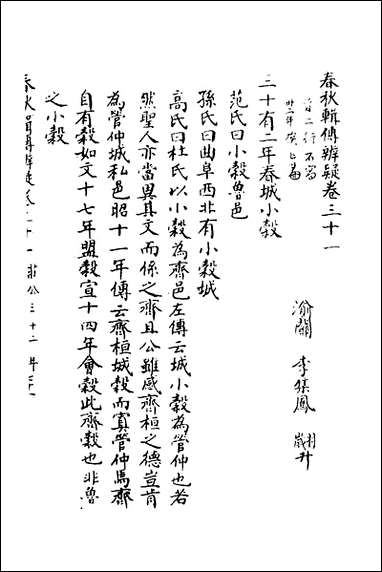 春秋輯傳辨疑卷三十一
渝關 李集鳳 翽升
三十有二年春城小穀
范氏曰小穀魯邑
孫氏曰曲阜西北有小穀城
高氏曰杜氏以小穀為齊邑左傳云城小穀為管仲也若
然聖人亦當異其文而係之齊且公雖感齊桓之德豈肯
為管仲城私邑昭十一年傳云齊桓城穀而寘管仲焉齊
自有穀如文十七年盟穀宣十四年會穀此齊穀也非魯
之小穀
春秋輯傳辨疑卷三十一 莊公三十二年